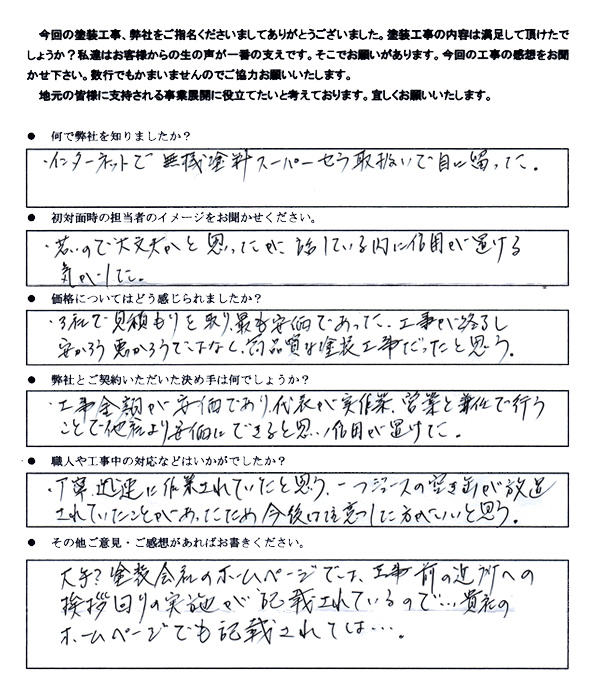 今回の塗装工事、弊社をご指名くださいましてありがとうございました。塗装工事の内容は満足して頂けたで
しょうか？私達はお客様からの生の声が一番の支えです。そこでお願いがあります。今回の工事の感想をお聞
かせ下さい。数行でもかまいませんのでご協力お願いいたします。
地元の皆様に支持される事業展開に役立てたいと考えております。宜しくお願いいたします。
● 何で弊社を知りましたか？
・インターネットで無機塗料スーパーセラ取扱いで目に留った。
● 初対面時の担当者のイメージをお聞かせください。
・若いので大丈夫かと思ったが、話している内に信用が置ける
気がした。
● 価格についてはどう感じられましたか？
・3社で見積もりを取り、最も安価であった。工事が終了し
安かろう悪かろうではなく、高品質な塗装工事だったと思う。
● 弊社とご契約いただいた決め手は何でしょうか？
・工事金額が安価であり、代表が実作業、営業と兼任で行う
ことで他社より安価にできると思い信用が置けた。
● 職人や工事中の対応などはいかがでしたか？
・丁寧、迅速に作業されていたと思う、一つジュースの空き缶が放置
されていたことがあったため今後は注意した方がいいと思う。
● その他ご意見・ご感想があればお書きください。
大手？塗装会社のホームページでは、工事前の近所への
挨拶回りの実施が記載されているので…貴社の
ホームページでも記載されては…。